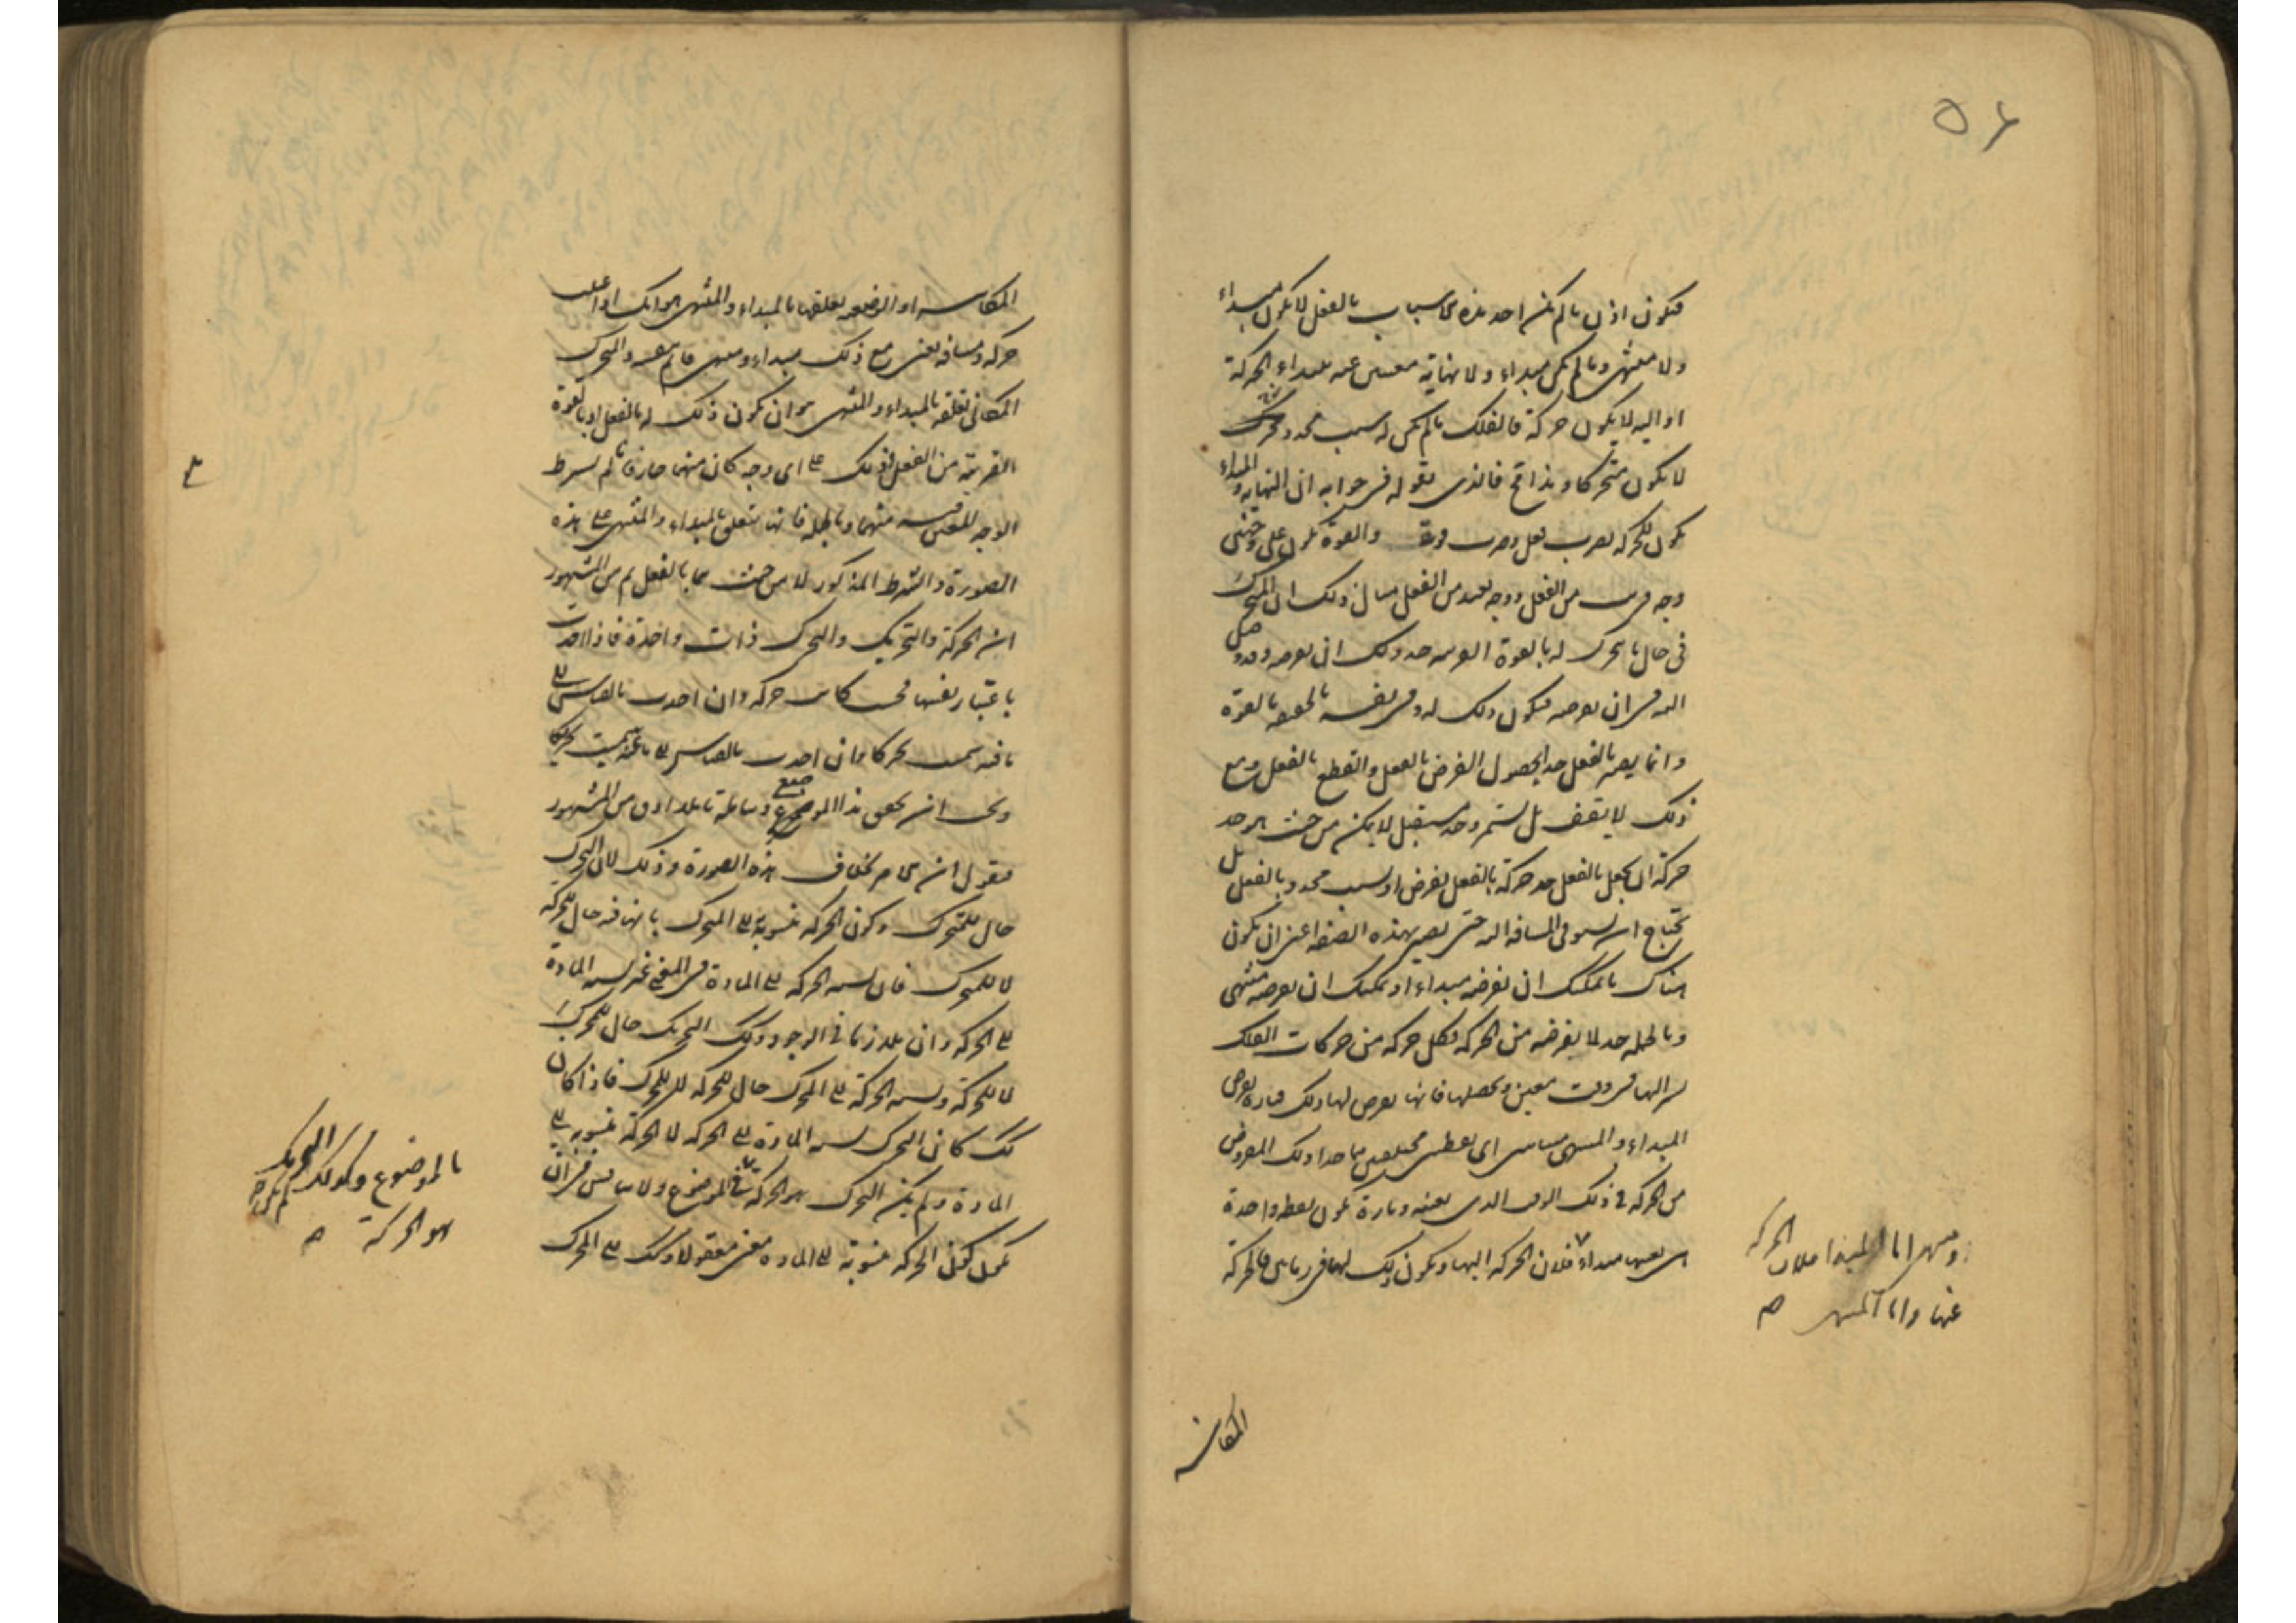 ٥٦
فيكون اذن ما لم يكن احد هذه الاسباب بالفعل لا يكون مبداء
ولا منتهى وما لم يكن مبداء ولا نهاية معين عنه يبتداء الحركة
او اليه لا يكون حركة فالفلك ما لم يكن له سبب محدد
لا يكون متحركا وهذا مح فالذى نقوله فى جوابه ان النهاية والمبداء
يكون للحركة بضرب فعل وضرب قوة والقوة يكون على وجهين
وجه قريب من الفعل ووجه بعيد من الفعل مثال ذلك ان المتحرك
فى حال ما يتحرك له بالقوة القريبة حد ولك ان تفرضه وقد وصل
اليه فى ان تفرضه فيكون ذلك له فى نفسه بالحقيقة بالقوة
وانما يصير بالفعل حدا بحصول الفرض بالفعل والقطع بالفعل ومع
ذلك لا يقف بل يستمر وحد مستقبل لا يمكن من حيث هو حد
حركة ان يجعل بالفعل حد حركة بالفعل بفرض او سبب محدد بالفعل بل
يحتاج ان يستوفى المسافة اليه حتى يصير بهذه الصفة اعنى ان يكون
هناك ما يمكنك ان تفرضه مبداء او يمكنك ان تفرضه منتهى
وبالجملة حد لما تفرضه من الحركة فكل حركة من حركات الفلك
تشير اليها فى وقت معين وتحصلها فانها تعرض لها ذلك فتارة يعرض
المبداء والمنتهى متباينين اى نقطتين مختلفتين هما حدا ذلك المفروض
من الحركة فى ذلك الوقت الذى تعينه وتارة يكون نقطة واحدة
هى بعينها مبداء فلان الحركة اليها ويكون ذلك لها فى زمانين فالحركة
ومنتهى اما المبدا فلان الحركة
عنها واما المنتهى
المكانية
المكانية او الوضعية تعلقها بالمبداء والمنتهى هو انك اذا عينت
حركة ومسافة تعين مع ذلك مبداء ومنتهى والمتحرك
المكانى تعلقه بالمبداء والمنتهى هو ان يكون ذلك له بالفعل او بالقوة
القريبة من الفعل وذلك على اى وجه كان منهما جاز فانا لم نشرط
الوجه المعين فيه منهما وبالجملة فانها تتعلق بالمبداء والمنتهى على هذه
الصورة والشرط المذكور لا من حيث هما بالفعل ثم من المشهور
ان الحركة والتحريك والتحرك ذات واحدة فاذا اخذت
باعتبار نفسها فحسب كانت حركة وان اخذت بالقياس الى
ما فيه سميت تحركا وان اخذت بالقياس الى ما عنه سميت تحريكا
ويجب ان نحقق هذا الموضع ونتامله تاملا ادق من المشهور
فنقول ان الامر بخلاف هذه الصورة وذلك لان التحرك
حال للمتحرك وكون الحركة منسوبة الى المتحرك بانها فيه حال للحركة
لا للمتحرك فان نسبة الحركة الى المادة فى المعنى غير نسبة المادة
الى الحركة وان تلازما فى الوجود وكذلك التحريك حال للمحرك
لا للحركة ونسبة الحركة الى المحرك حال للحركة لا للمحرك فاذا كان
كك كان التحرك نسبة المادة الى الحركة لا الحركة منسوبة الى
المادة ولم يكن التحرك هو الحركة فى الموضوع ولا نناقش فى ان
يكون كون الحركة منسوبة الى المادة معنى معقولا وكك الى المحرك
بالموضوع وكذلك التحريك لم يكن
هو الحركة